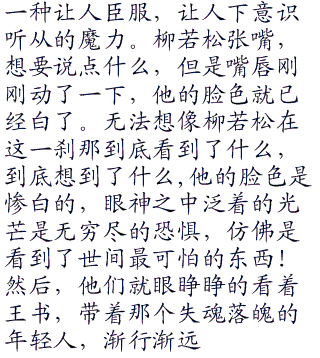 一种让人臣服，让人下意识
听从的魔力。柳若松张嘴，
想要说点什么，但是嘴唇刚
刚动了一下，他的脸色就已
经白了。无法想像柳若松在
这一刹那到底看到了什么，
到底想到了什么,他的脸色是
惨白的，眼神之中泛着的光
芒是无穷尽的恐惧，仿佛是
看到了世间最可怕的东西！
然后，他们就眼睁睁的看着
王书，带着那个失魂落魄的
年轻人，渐行渐远